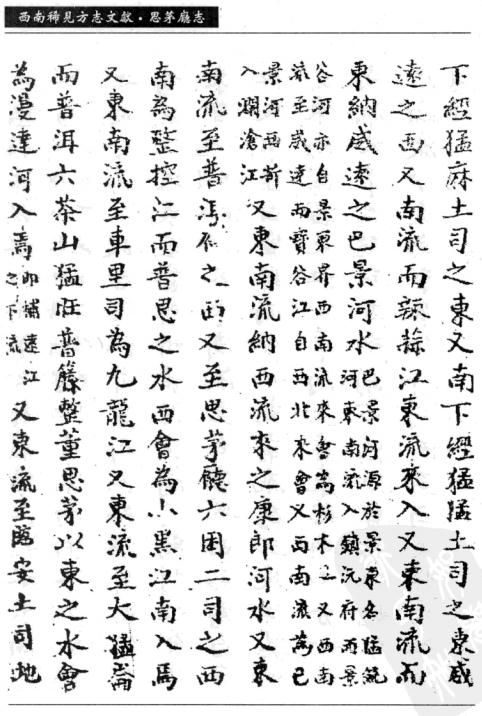 西南稀見方志文獻·思茅廳志
下經猛麻土司之東又南下經猛猛土司之東威
遠之西又南流而辣蒜江東流來入又東南流而
東納威遠之巴景河水巴景河源於景東名猛統
河東南流入鎮沅府而景
谷河亦自景東界西南流來會為杉木江又西南
流至威遠而寶谷江自西北來會又西南流為巴
景河西折
入瀾滄江又東南流納西流來之康郎河水又東
南流至普洱府之西又至思茅廳六困二司之西
南為整控江而普思之水西會為小黑江南入焉
又東南流至車里司為九龍江又東流至大猛崙
而普洱六茶山猛旺普籐整董思茅以東之水會
為漫達河入焉即補遠江
之下流又東流至臨安土司地